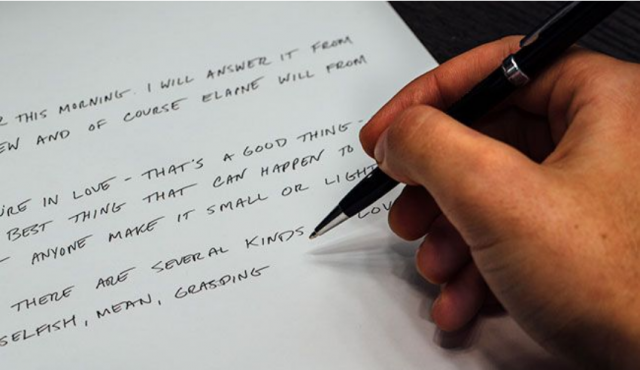 THIS MORNING. I WILL ANSWER IT FROM
AND OF COURSE ELAINE WILL FROM
IN LOVE - THAT'S A GOOD THING -
BEST THING THAT CAN HAPPEN TO
ANYONE MAKE IT SMALL OR LIGHT
THERE ARE SEVERAL KINDS LOV
SELFISH, MEAN, GRASPING